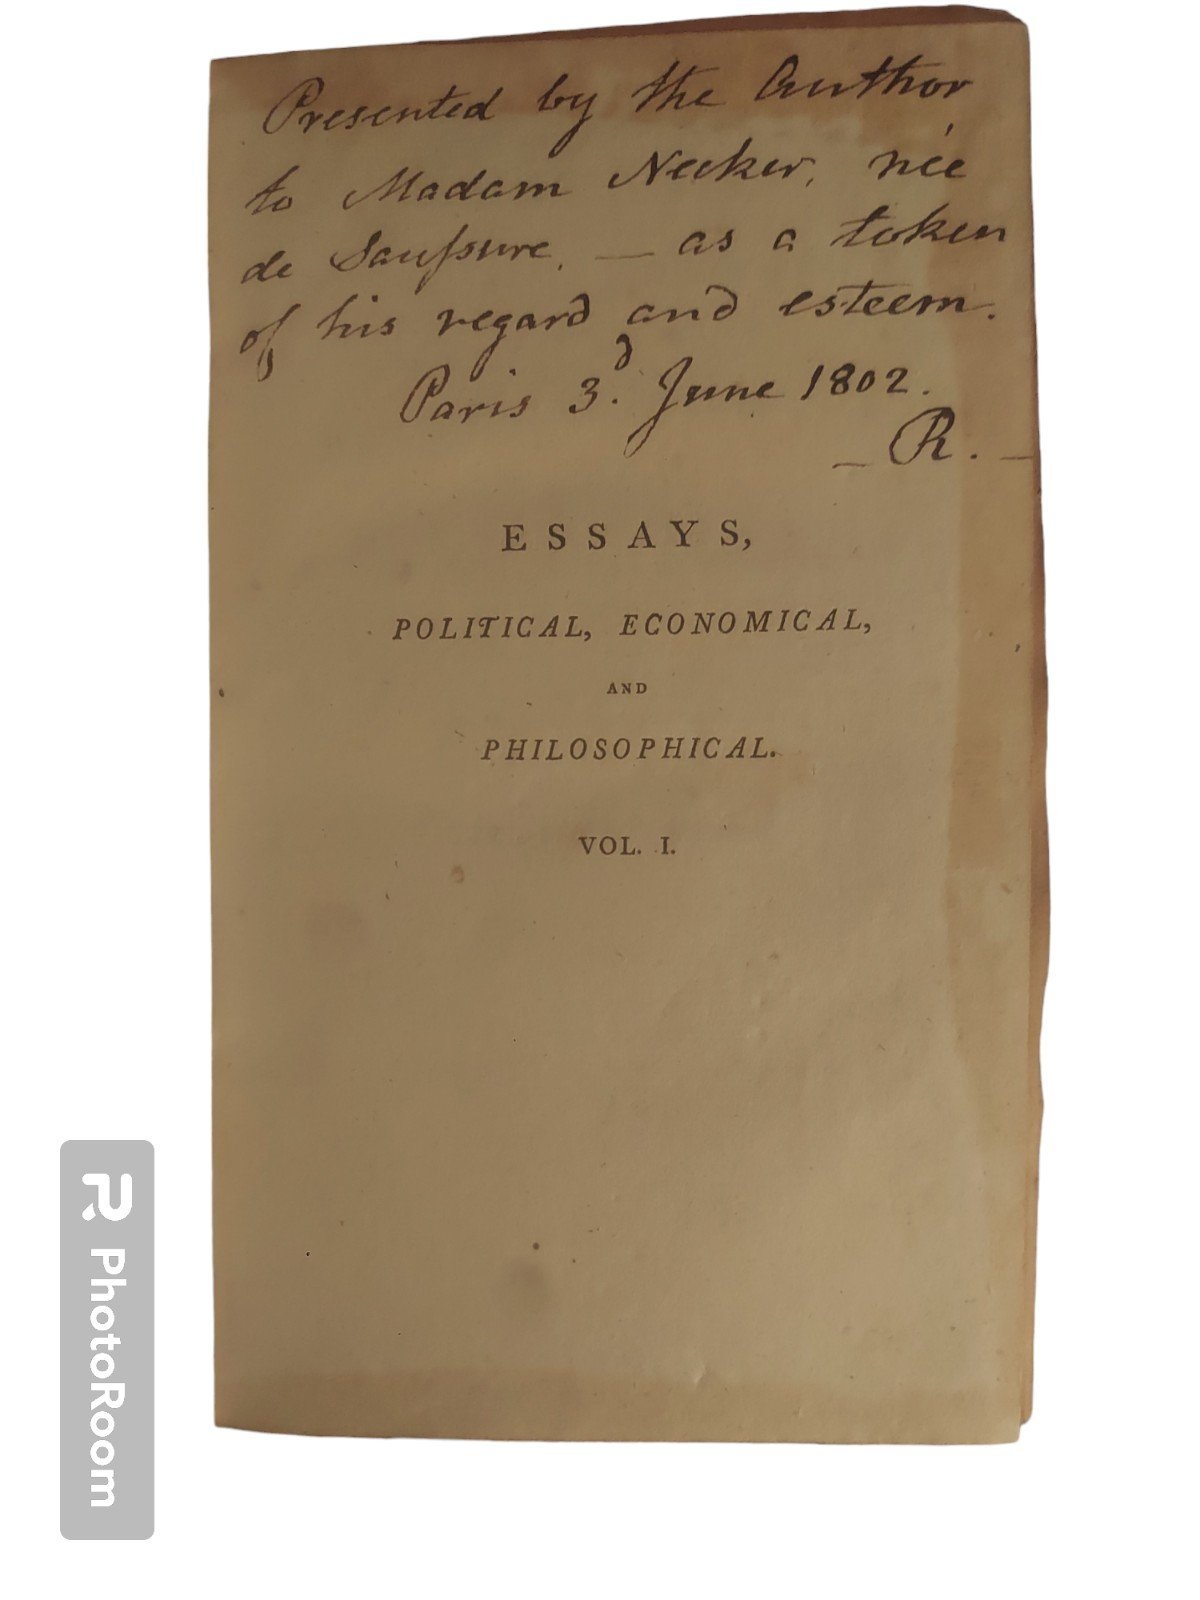 Presented by the Author
to Madam Necker, née
de Sauſsure, — as a token
of his regard and esteem.
Paris 3.d June 1802.
— R. —
ESSAYS,
POLITICAL, ECONOMICAL,
AND
PHILOSOPHICAL.
VOL. I.
PhotoRoom